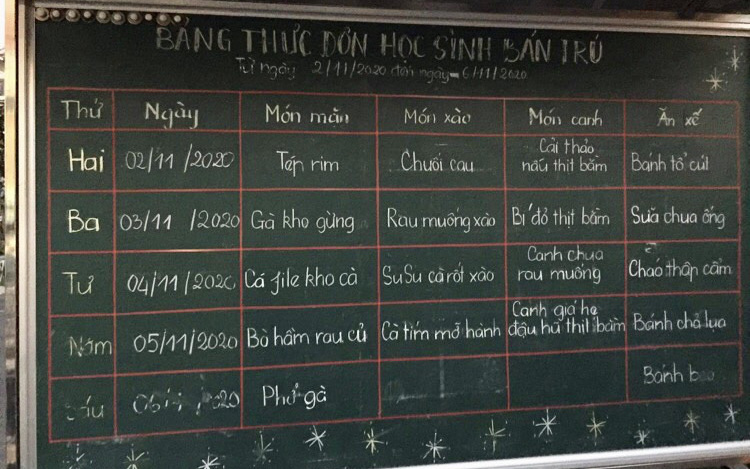 BẢNG THỰC ĐƠN HỌC SINH BÁN TRÚ
Từ ngày 2/11/2020 đến ngày 6/11/2020
Thứ Ngày Món mặn Món xào Món canh Ăn xế
Hai 02/11/2020 Tép rim Chuối cau Cải thảo nấu thịt bằm Bánh tổ cúi
Ba 03/11/2020 Gà kho gừng Rau muống xào Bí đỏ thịt bằm Sữa chua ống
Tư 04/11/2020 Cá file kho cà SuSu cà rốt xào Canh chua rau muống Cháo thập cẩm
Năm 05/11/2020 Bò hầm rau củ Cà tím mỡ hành Canh giá hẹ đậu hũ thịt bằm Bánh chả lụa
Sáu 2020 Phở gà Bánh